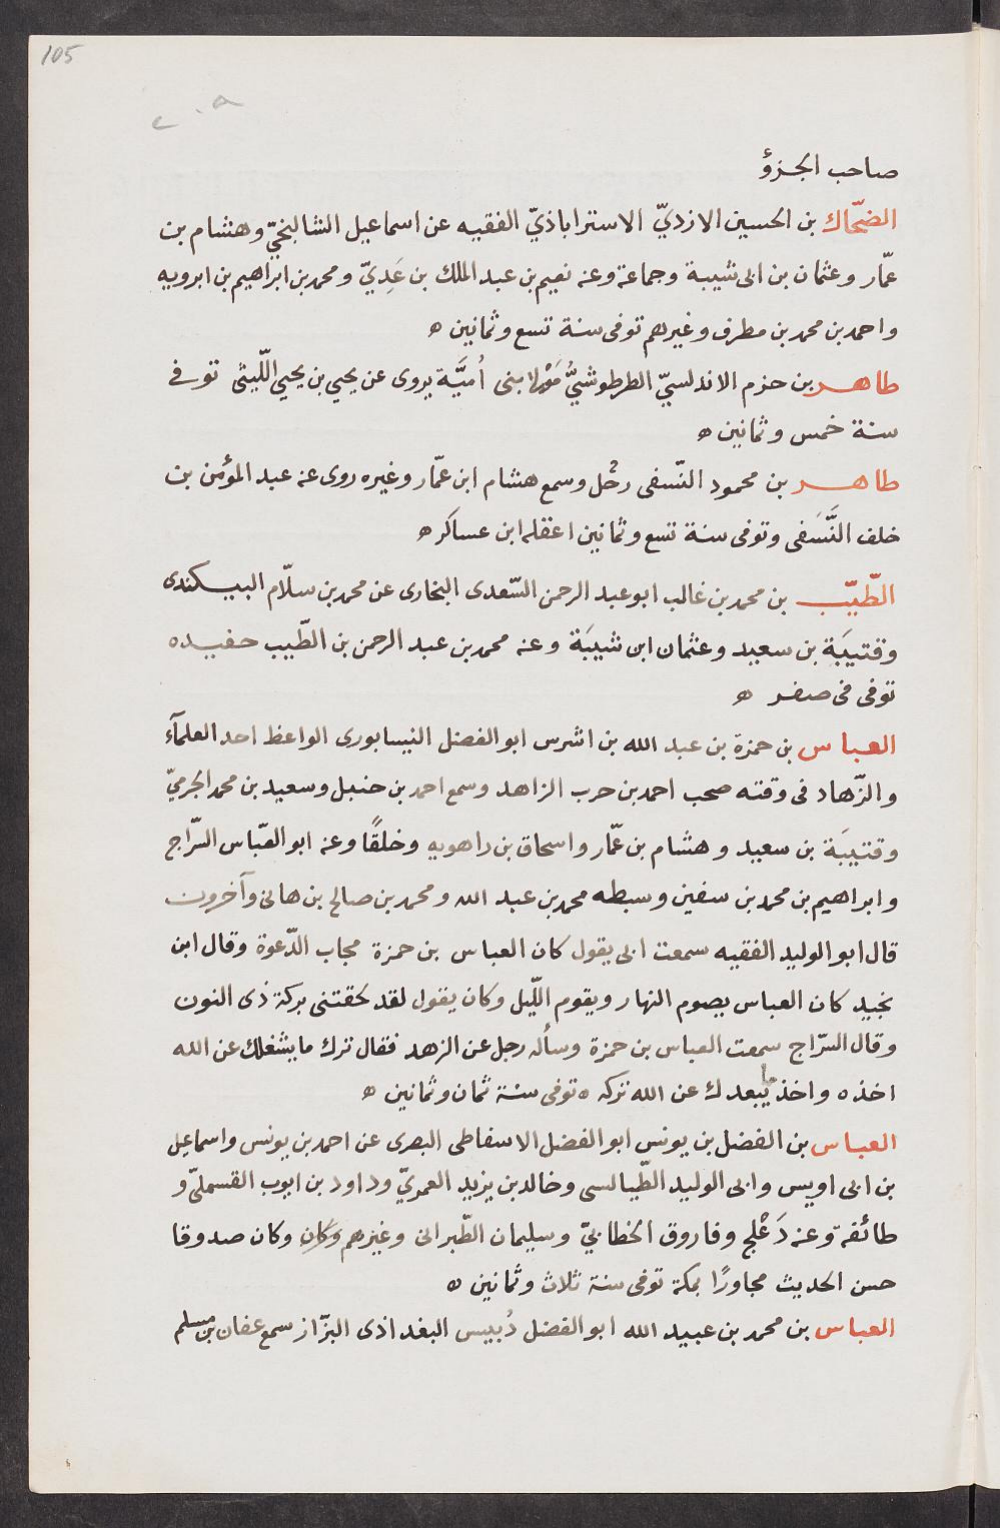 105
٢٠٨
صاحب الجزؤ
الضحّاك بن الحسين الازديّ الاستراباذيّ الفقيه عن اسماعيل الشالنجيّ وهشام بن
عمّار وعثمان بن ابى شيبة وجماعة وعنه نعيم بن عبد الملك بن عَدِيّ ومحمد بن ابراهيم بن ابرويه
واحمد بن محمد بن مطرف وغيرهم توفى سنة تسع وثمانين ه
طاهر بن حزم الاندلسيّ الطرطوشيُّ مَوْلا بنى اُميَّة يروى عن يحيي بن يحيي اللّيثى توفى
سنة خمس وثمانين ه
طاهر بن محمود النّسفى رحْل وسمع هشام ابن عمّار وغيره روى عنه عبد المؤمن بن
خلف النَّسَفى وتوفى سنة تسع وثمانين اغفله ابن عساكر ه
الطّيّب بن محمد بن غالب ابو عبد الرحمن السّعدى البخارى عن محمد بن سلّام البيكندى
وقتيبَة بن سعيد وعثمان ابن شيبَة وعنه محمد بن عبد الرحمن بن الطّيب حفيده
توفى فى صفر ه
العباس بن حمزة بن عبد الله بن اشرس ابو الفضل النيسابورى الواعظ احد العلمآء
والزّهاد فى وقته صحب احمد بن حرب الزاهد وسمع احمد بن حنبل وسعيد بن محمد الجرميّ
وقتيبَة بن سعيد وهشام بن عمّار واسحاق بن راهويه وخلقًا وعنه ابو العبّاس السّراج
وابراهيم بن محمد بن سفين وسبطه محمد بن عبد الله ومحمد بن صالح بن هانئ وآخرون
قال ابو الوليد الفقيه سمعت ابى يقول كان العباس بن حمزة مجاب الدّعوة وقال ابن
نجيد كان العباس يصوم النهار ويقوم اللّيل وكان يقول لقد لحقتنى بركة ذى النون
وقال السّراج سمعت العباس بن حمزة وسأله رجل عن الزهد فقال ترك ما يشغلك عن الله
اخذه واخذ ما يبعدك عن الله تركه ه توفى سنة ثمان وثمانين ه
العباس بن الفضل بن يونس ابو الفضل الاسفاطى البصرى عن احمد بن يونس واسماعيل
بن ابى اويس وابى الوليد الطّيالسى وخالد بن يزيد العمريّ وداود بن ايوب القسمليّ و
طائفة وعنه دَعْلج وفاروق الخطابيّ وسليمان الطّبرانى وغيرهم وكان وكان صدوقا
حسن الحديث مجاورًا بمكة توفى سنة ثلاث وثمانين ه
العباس بن محمد بن عبيد الله ابو الفضل دُبيس البغداذى البزّاز سمع عفان بن مسلم